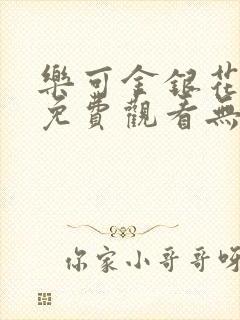 樂可金銀花
免費觀看無
你家小哥哥呀